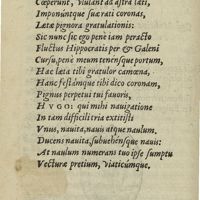 Cœperunt, viulant ad astra lati,
Imponúntque suæ rati coronas,
Lætæ pignora gratulationis:
Sic nunc sic ego penè iam peracto
Fluctus Hippocratis per & Galeni
Cursu, penè meum tenensque portum,
Hac læta tibi gratulor camœna,
Hanc festámque tibi dico coronam,
Pignus perpetui tui fauoris,
HVGO: qui mihi nauigatione
In tam difficili tria extitisti
Vnus, nauita, nauis atque naulum.
Ducens nauita, subuehensque nauis:
At naulum numerans tuo ipse sumptu
Vecturæ pretium, viaticúmque.